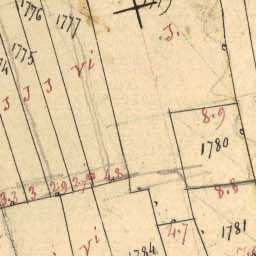 1776
1777
1775
J.
vi
J J J
8.9
1780
3 2.9
4.8
8.8
4.7
1781
vi
1784